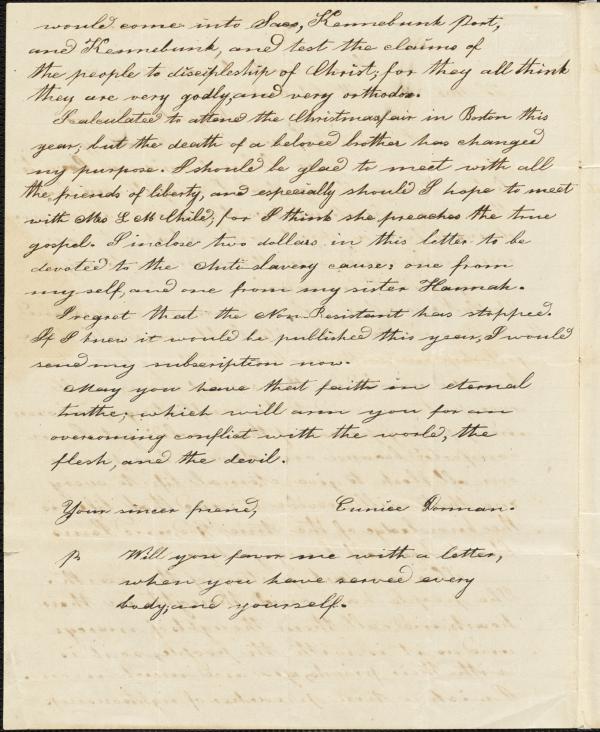 would come into Saco, Kennebunk Port,
and Kennebunk, and test the claims of
the people to discipleship of Christ; for they all think
they are very godly, and very orthodox.
I calculated to attend the Christmas fair in Boston this
year, but the death of a beloved brother has changed
my purpose. I should be glad to meet with all
the friends of liberty, and especially should I hope to meet
with Mrs L M Child; for I think she preaches the true
gospel. I inclose two dollars in this letter to be
devoted to the Anti slavery cause; one from
myself, and one from my sister Hannah.
I regret that the Non-Resistant has stopped.
If I knew it would be published this year, I would
send my subscription now.
May you have that faith in eternal
truth; which will arm you for an
overcoming conflict with the world, the
flesh, and the devil.
Your sincer friend, Eunice Dorman.
ps Will you favor me with a letter,
when you have served every
body, and yourself.